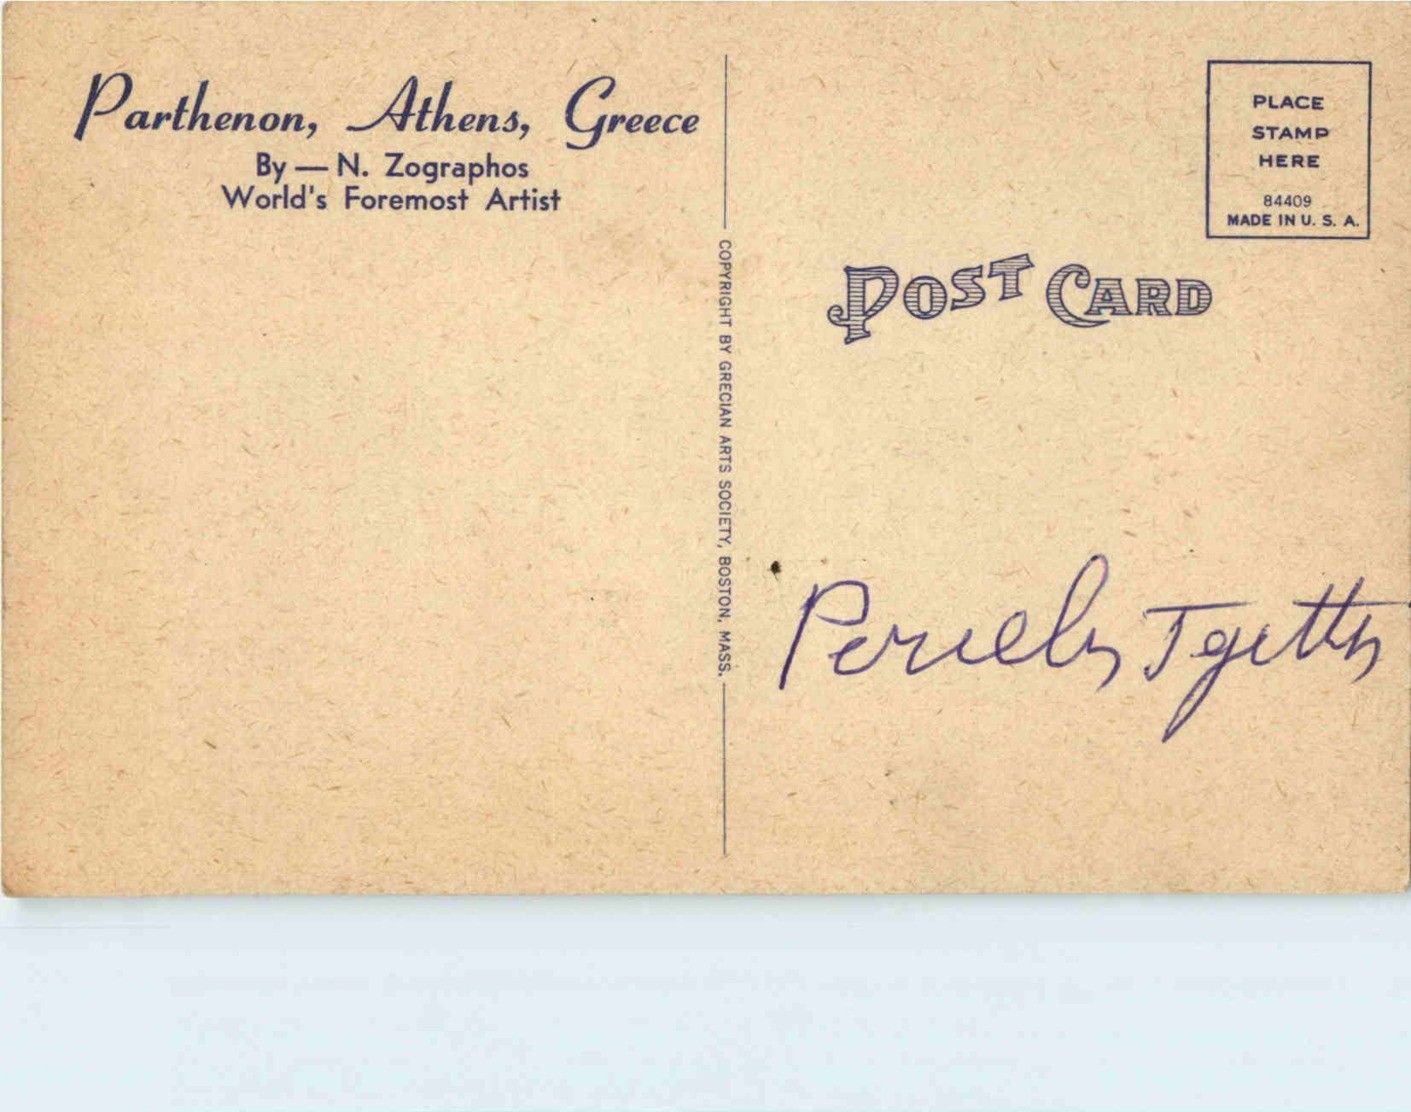 Parthenon, Athens, Greece
By — N. Zographos
World's Foremost Artist
COPYRIGHT BY GRECIAN ARTS SOCIETY, BOSTON, MASS.
PLACE
STAMP
HERE
84409
MADE IN U. S. A.
POST CARD